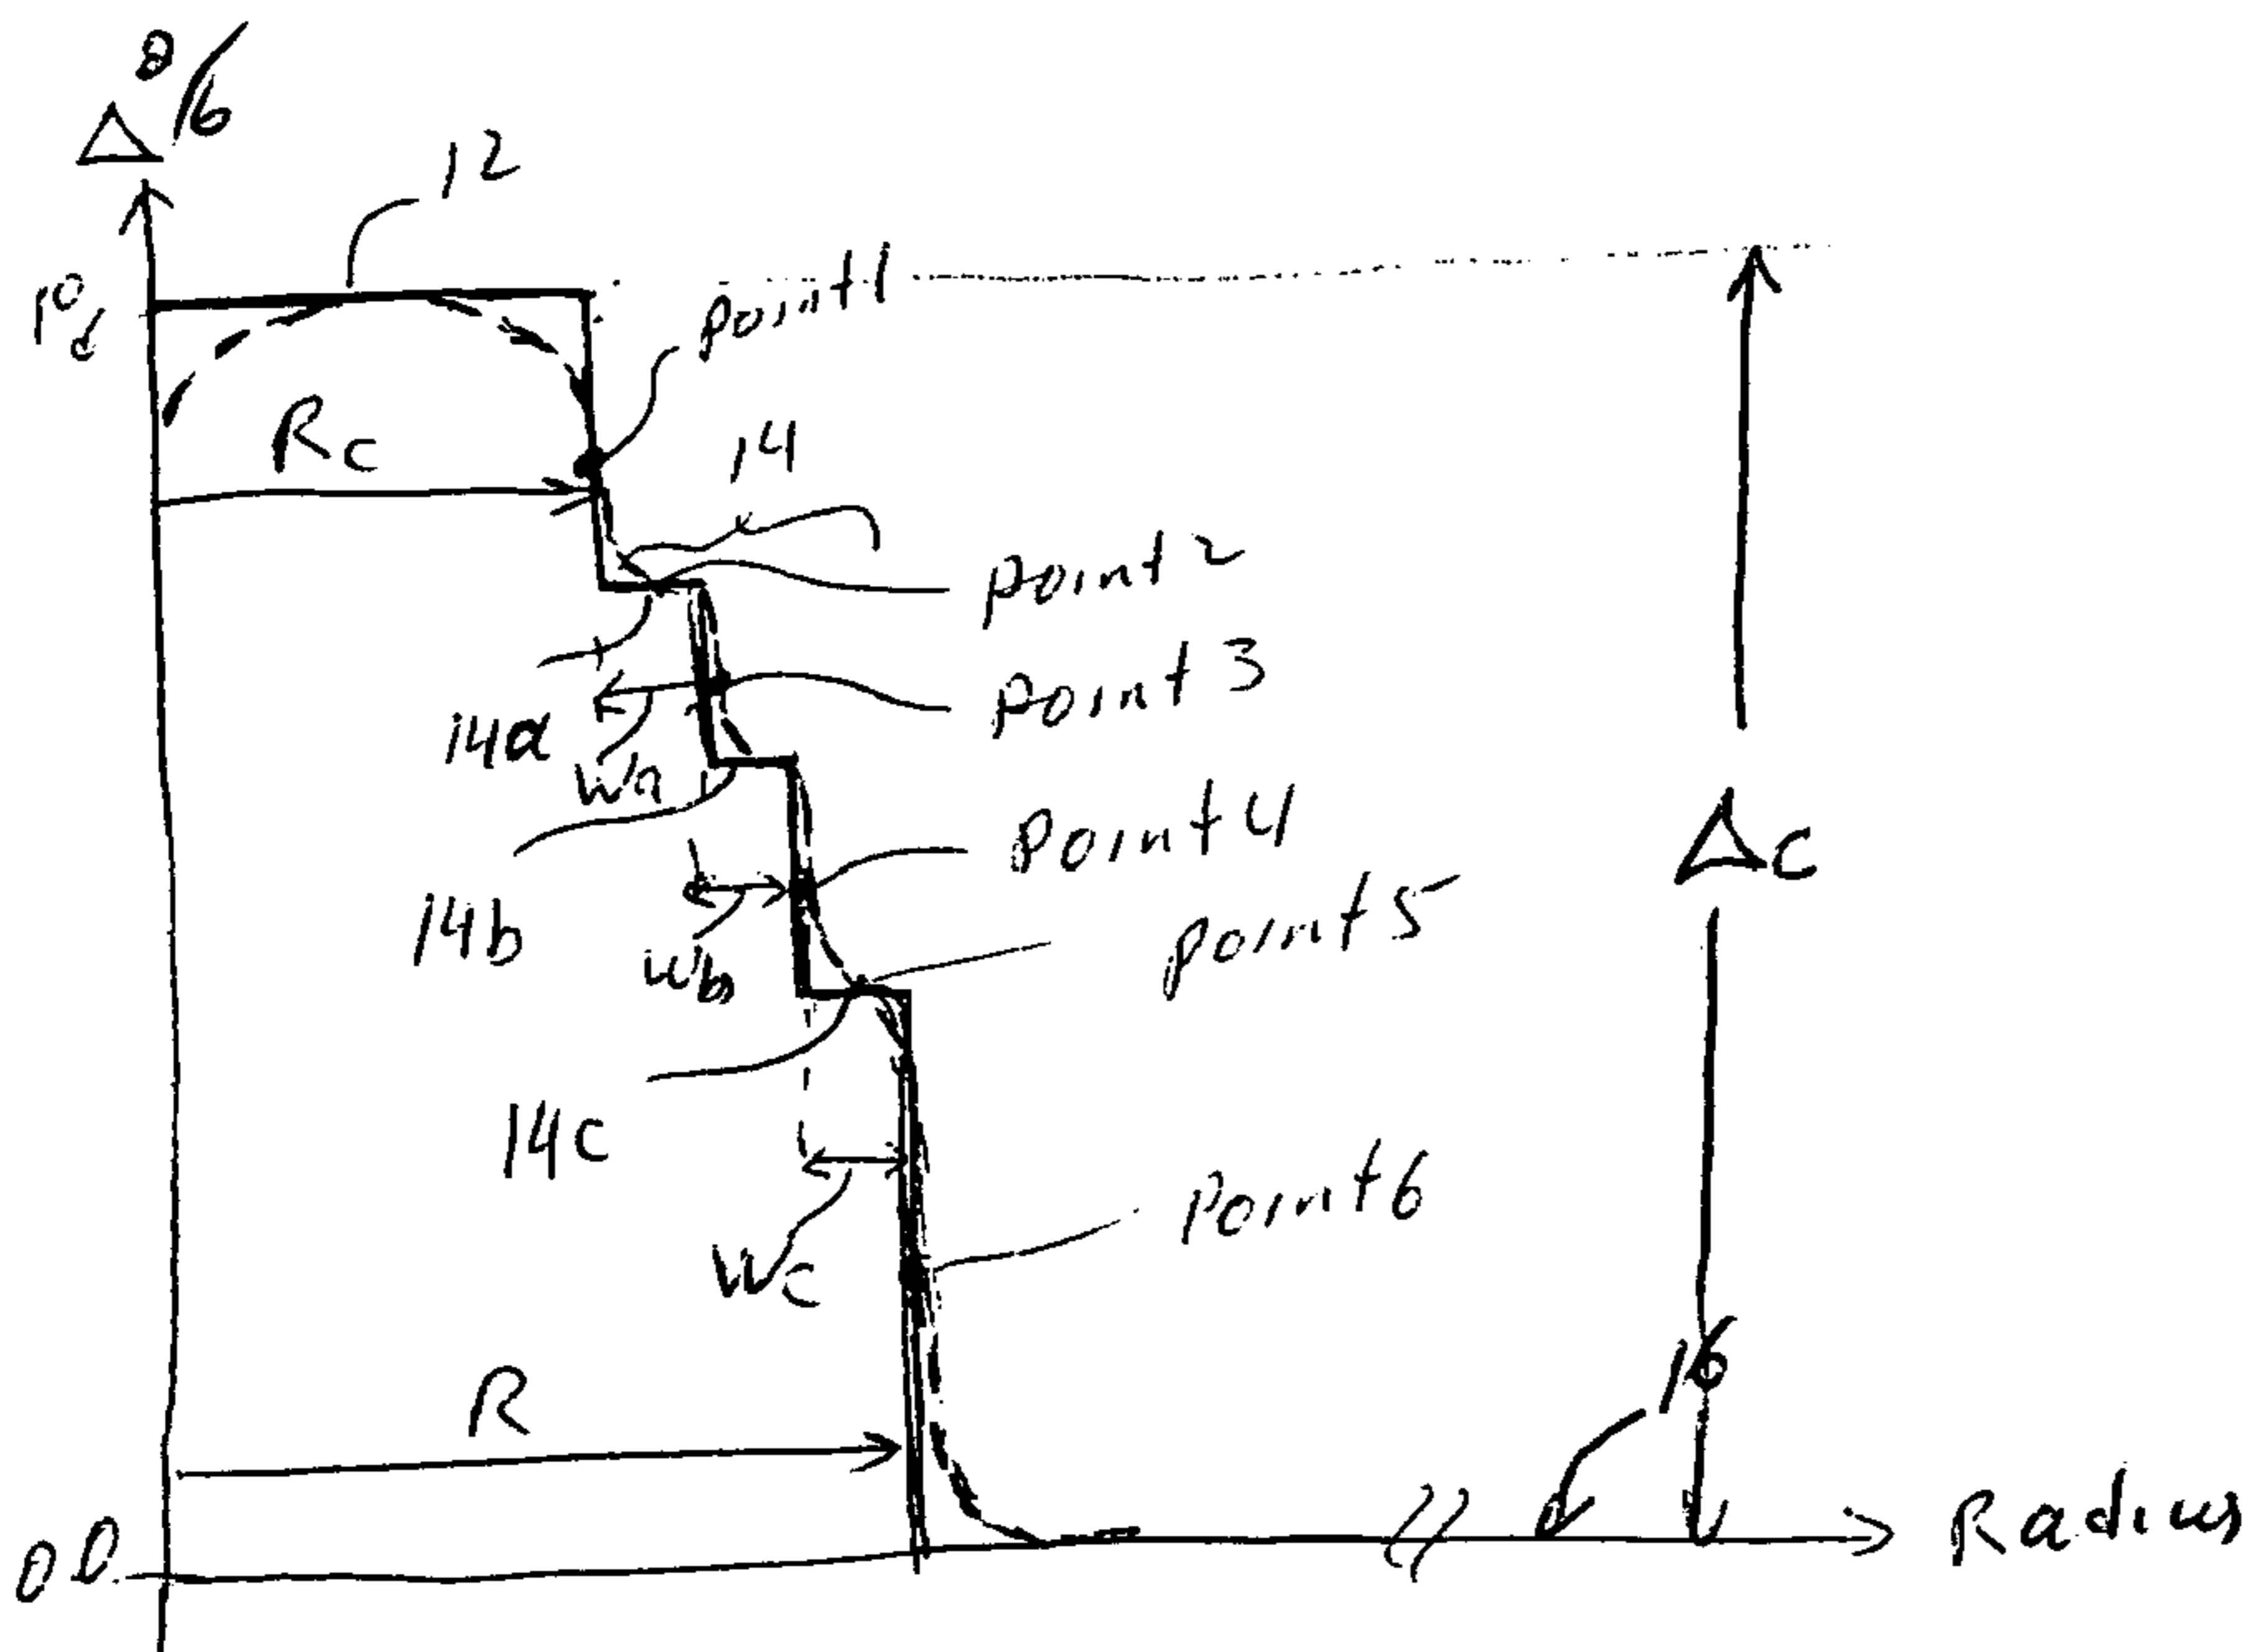 Δ%
12
1%
point 1
Rc
14
point 2
point 3
14a
Wa
point 4
Δc
14b
Wb
point 5
14c
point 6
Wc
R
16
Radius